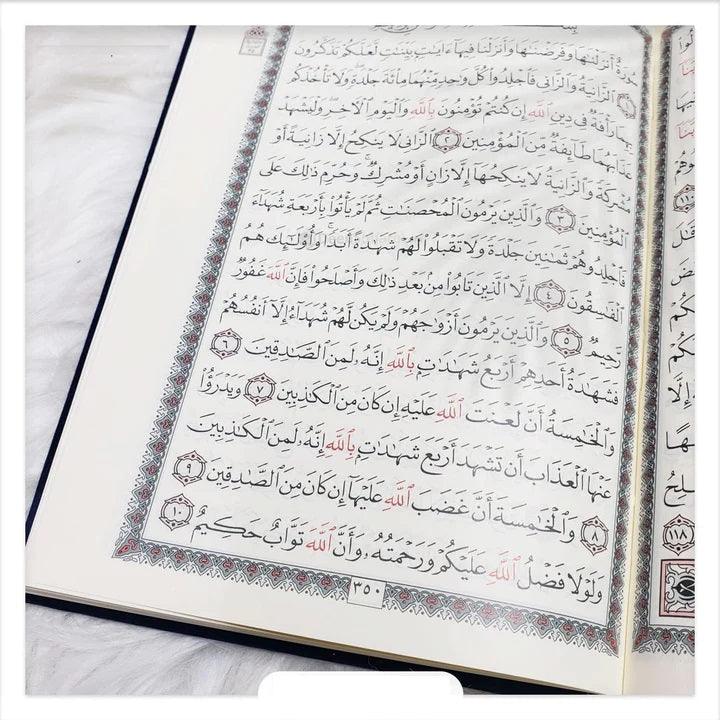 سُورَةٌ أَنزَلْنَٰهَا وَفَرَضْنَٰهَا وَأَنزَلْنَا فِيهَآ ءَايَٰتٍۭ بَيِّنَٰتٍ لَّعَلَّكُمْ تَذَكَّرُونَ
١ ٱلزَّانِيَةُ وَٱلزَّانِى فَٱجْلِدُوا۟ كُلَّ وَٰحِدٍ مِّنْهُمَا مِا۟ئَةَ جَلْدَةٍ وَلَا تَأْخُذْكُم
بِهِمَا رَأْفَةٌ فِى دِينِ ٱللَّهِ إِن كُنتُمْ تُؤْمِنُونَ بِٱللَّهِ وَٱلْيَوْمِ ٱلْءَاخِرِ وَلْيَشْهَدْ
عَذَابَهُمَا طَآئِفَةٌ مِّنَ ٱلْمُؤْمِنِينَ ٢ ٱلزَّانِى لَا يَنكِحُ إِلَّا زَانِيَةً أَوْ
مُشْرِكَةً وَٱلزَّانِيَةُ لَا يَنكِحُهَآ إِلَّا زَانٍ أَوْ مُشْرِكٌ وَحُرِّمَ ذَٰلِكَ عَلَى
ٱلْمُؤْمِنِينَ ٣ وَٱلَّذِينَ يَرْمُونَ ٱلْمُحْصَنَٰتِ ثُمَّ لَمْ يَأْتُوا۟ بِأَرْبَعَةِ شُهَدَآءَ
فَٱجْلِدُوهُمْ ثَمَٰنِينَ جَلْدَةً وَلَا تَقْبَلُوا۟ لَهُمْ شَهَٰدَةً أَبَدًا وَأُو۟لَٰٓئِكَ هُمُ
ٱلْفَٰسِقُونَ ٤ إِلَّا ٱلَّذِينَ تَابُوا۟ مِنۢ بَعْدِ ذَٰلِكَ وَأَصْلَحُوا۟ فَإِنَّ ٱللَّهَ غَفُورٌ
رَّحِيمٌ ٥ وَٱلَّذِينَ يَرْمُونَ أَزْوَٰجَهُمْ وَلَمْ يَكُن لَّهُمْ شُهَدَآءُ إِلَّآ أَنفُسُهُمْ
فَشَهَٰدَةُ أَحَدِهِمْ أَرْبَعُ شَهَٰدَٰتٍۭ بِٱللَّهِ إِنَّهُۥ لَمِنَ ٱلصَّٰدِقِينَ ٦
وَٱلْخَٰمِسَةُ أَنَّ لَعْنَتَ ٱللَّهِ عَلَيْهِ إِن كَانَ مِنَ ٱلْكَٰذِبِينَ ٧ وَيَدْرَؤُا۟
عَنْهَا ٱلْعَذَابَ أَن تَشْهَدَ أَرْبَعَ شَهَٰدَٰتٍۭ بِٱللَّهِ إِنَّهُۥ لَمِنَ ٱلْكَٰذِبِينَ
٨ وَٱلْخَٰمِسَةَ أَنَّ غَضَبَ ٱللَّهِ عَلَيْهَآ إِن كَانَ مِنَ ٱلصَّٰدِقِينَ ٩
وَلَوْلَا فَضْلُ ٱللَّهِ عَلَيْكُمْ وَرَحْمَتُهُۥ وَأَنَّ ٱللَّهَ تَوَّابٌ حَكِيمٌ ١٠
٣٥٠
١١٨